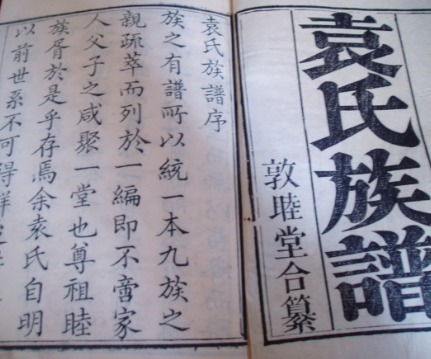 袁氏族譜
敦睦堂合纂
袁氏族譜序
族之有譜所以統一本九族之
親疏萃而列於一編即不啻家
人父子之咸聚一堂也尊祖睦
族胥於是乎存焉余袁氏自明
以前世系不可得詳